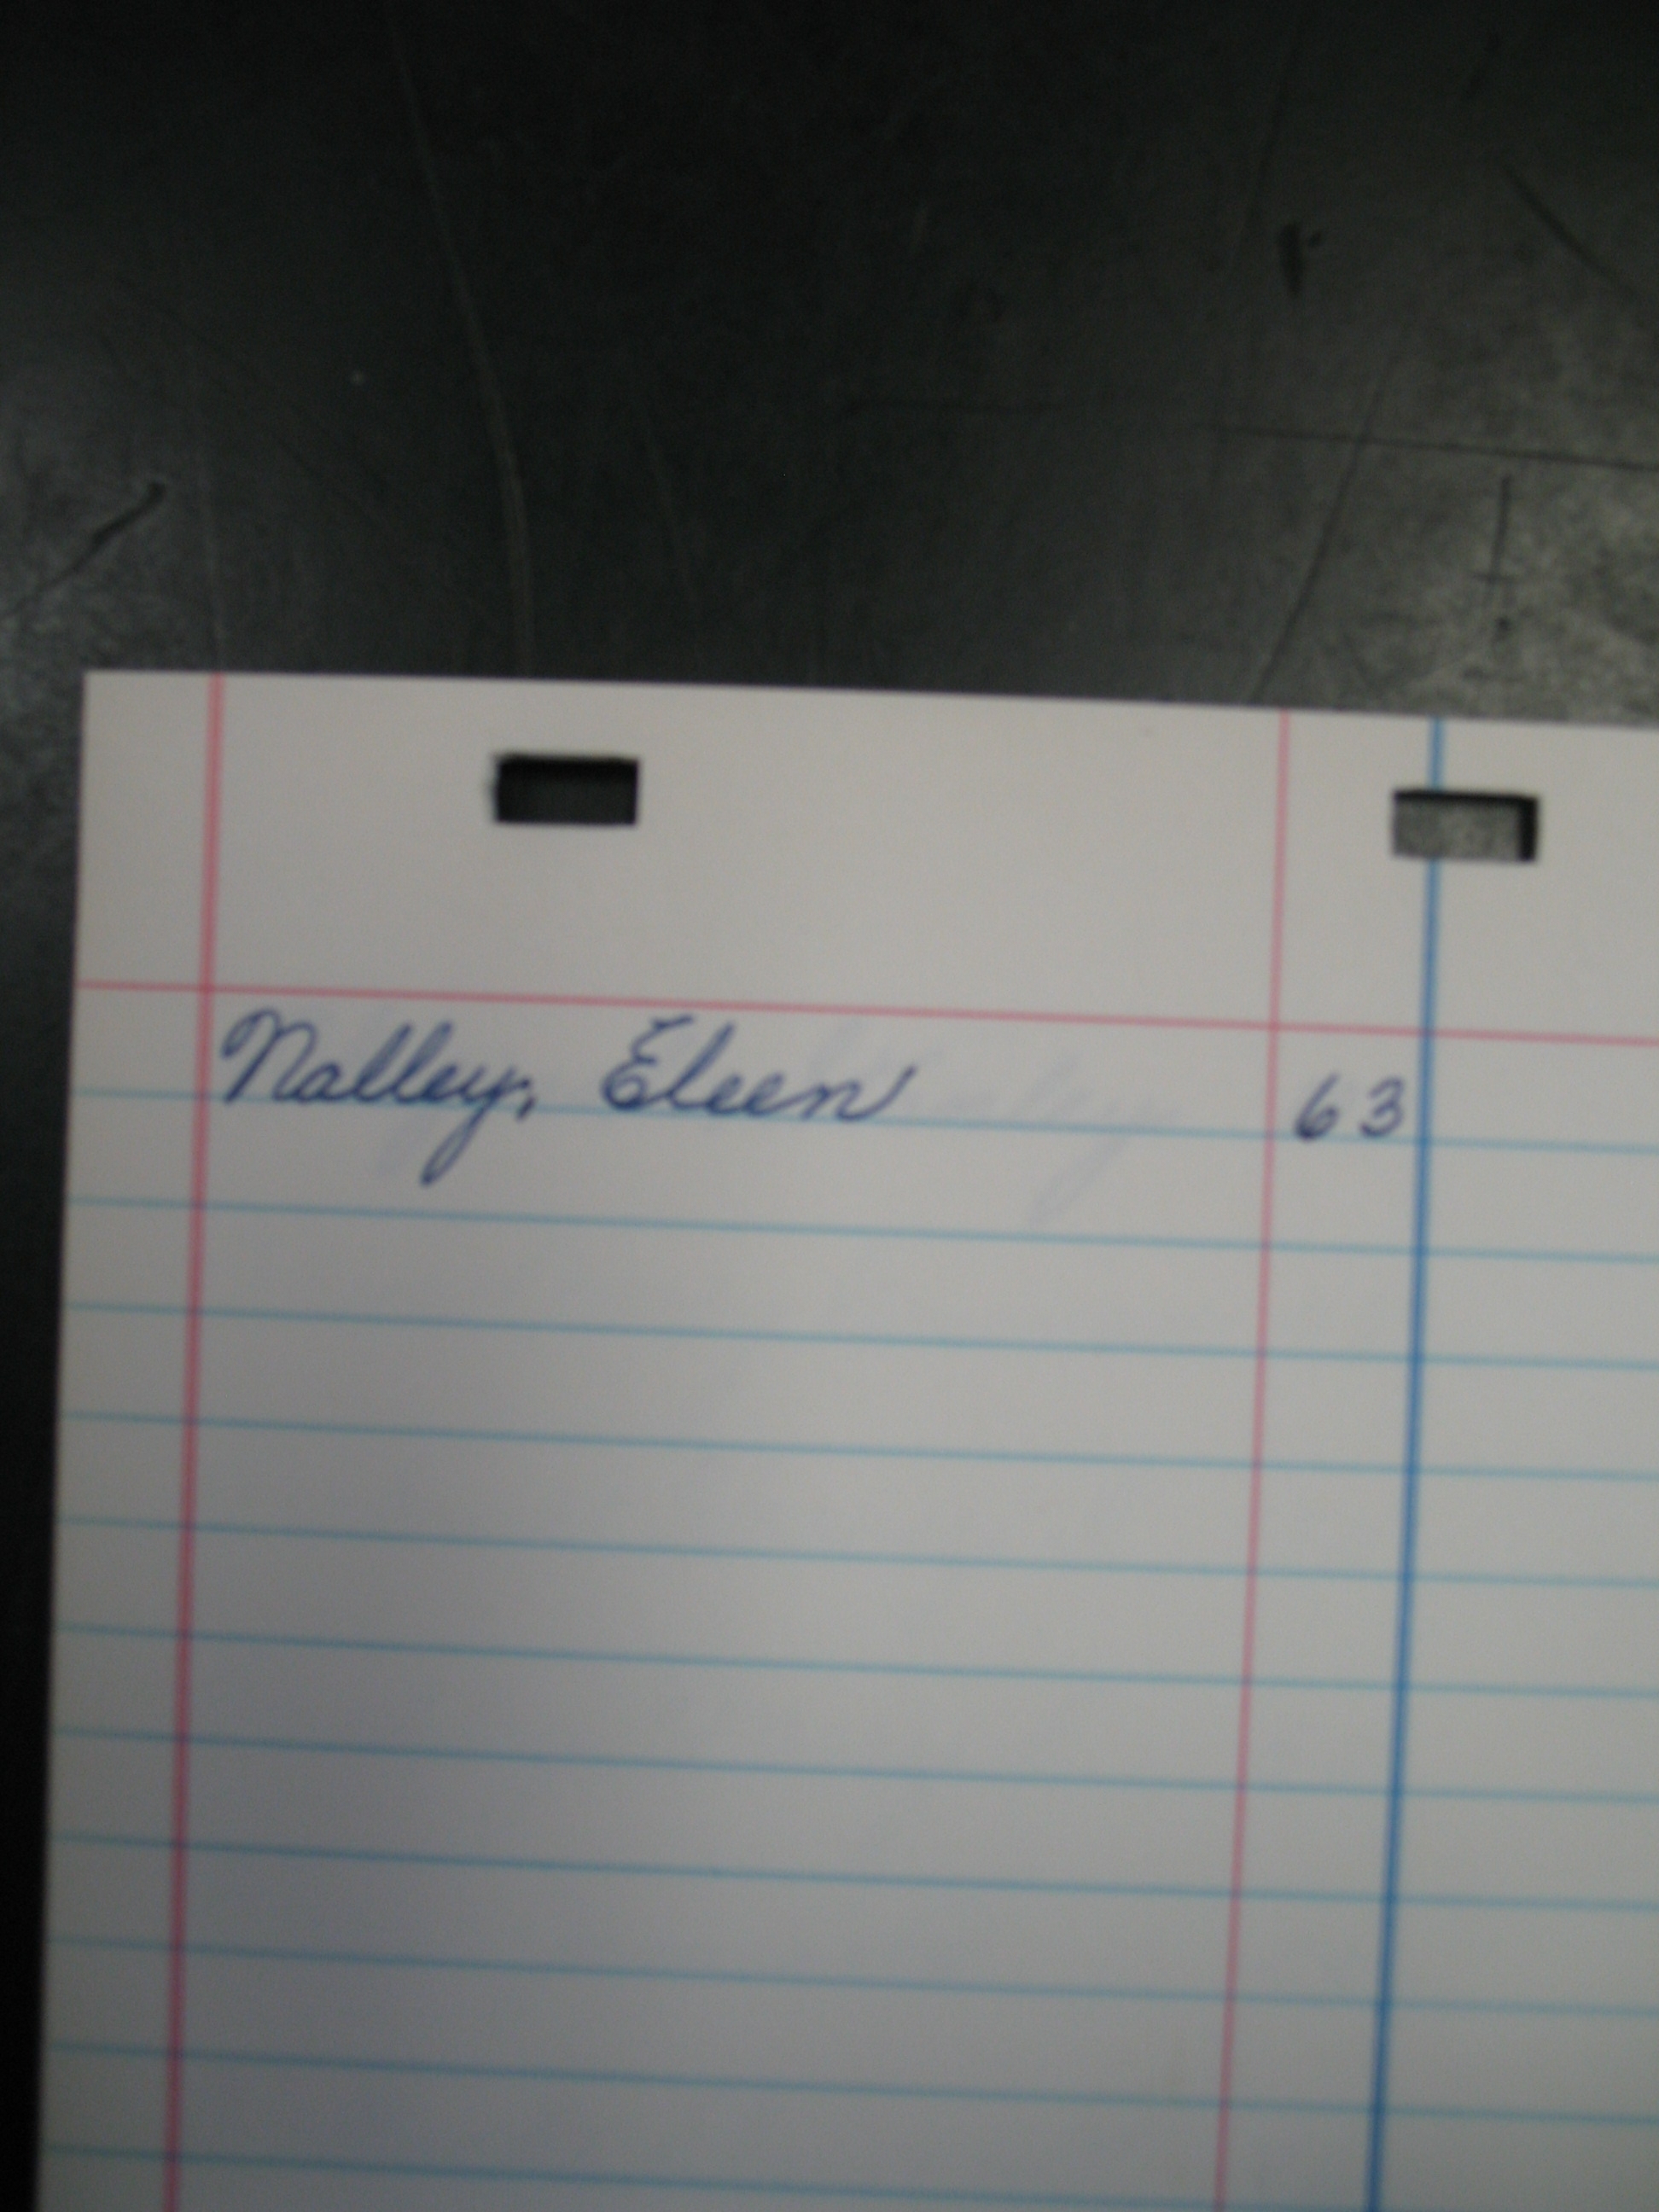 Nalley, Eleen 63